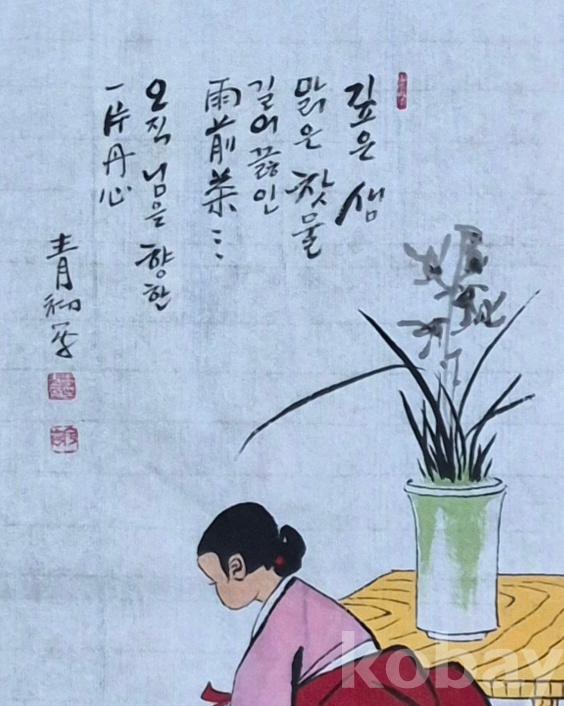 깊은 샘
맑은 찻물
길어 끓인
雨前茶…
오직 님을 향한
一片丹心
kobay